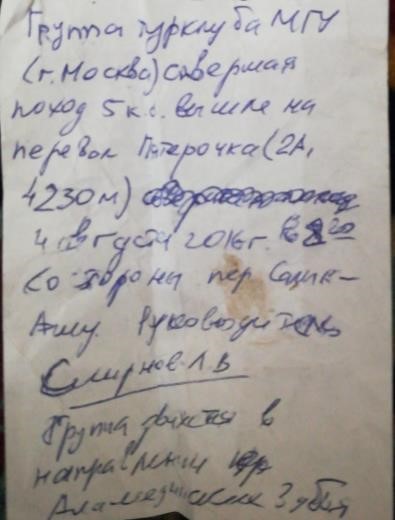 Группа турклуба МГУ
(г. Москва) совершая
поход 5 к.с. вышла на
перевал Пятерочка (2А,
4230 м)
4 августа 2016 г. В 8 20
Со стороны пер Салык-
Ашу. Руководитель
Смирнов Л.В
Группа движется в
направлении пер
Аламединские Зубья